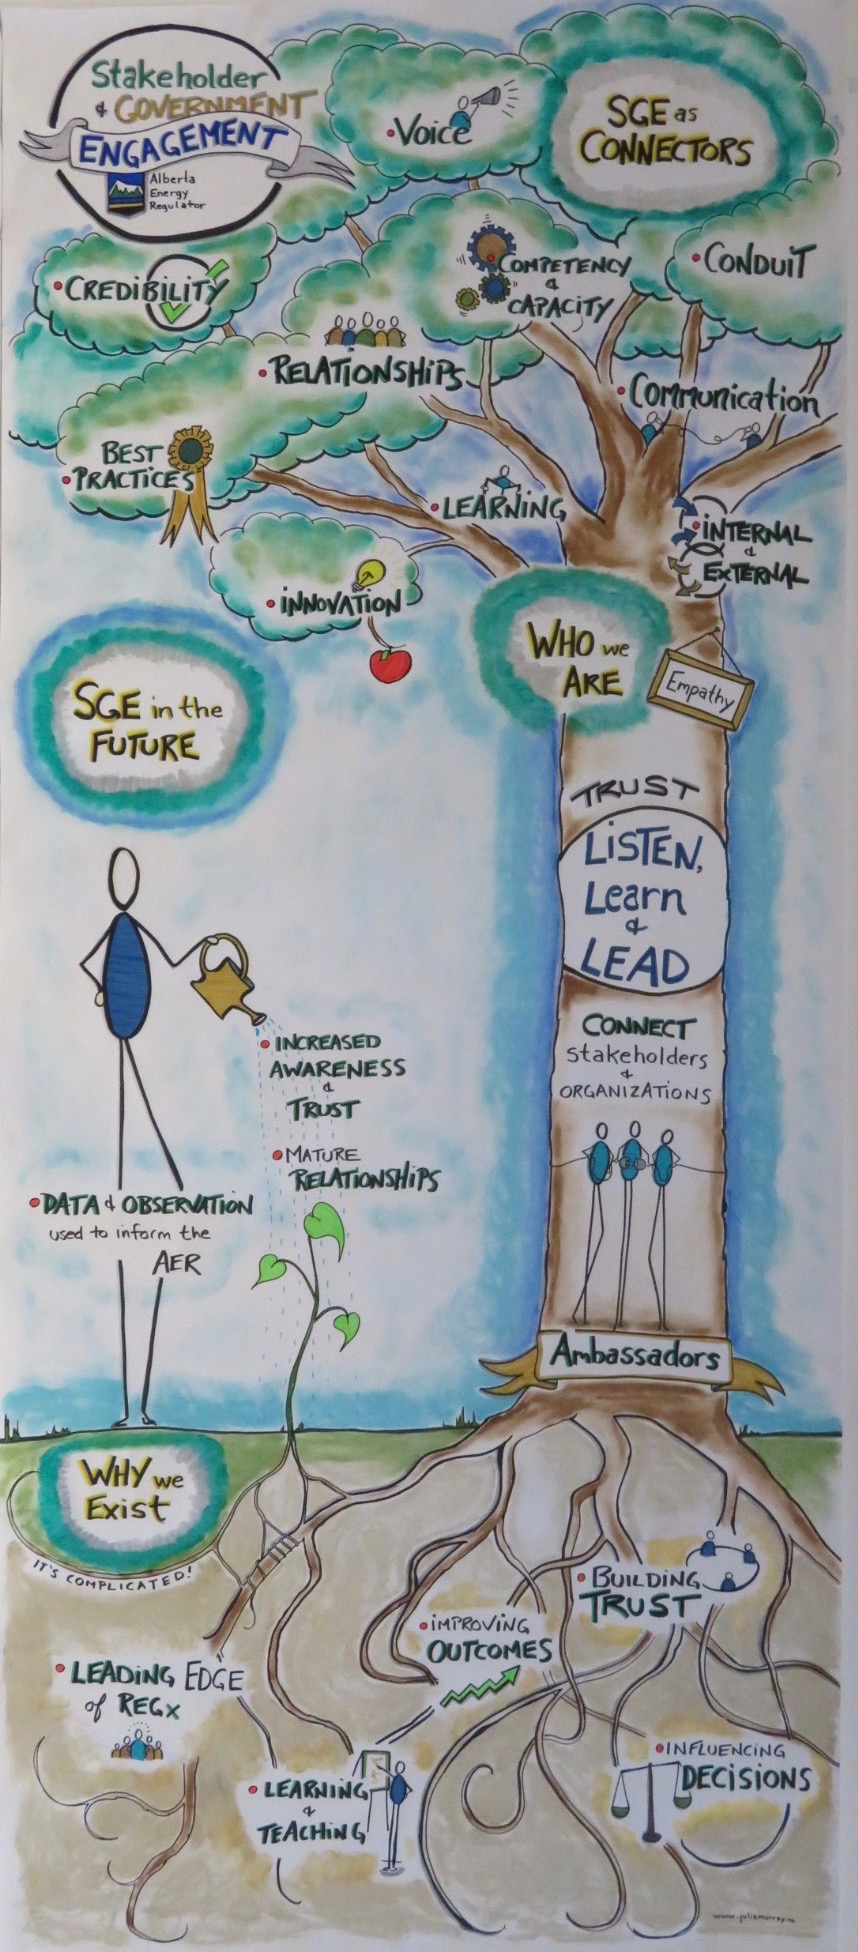 Stakeholder
& GOVERNMENT
ENGAGEMENT
Alberta
Energy
Regulator
•Voice
SGE as
CONNECTORS
•CREDIBILITY
•COMPETENCY
&
CAPACITY
•CONDUIT
•RELATIONSHIPS
•Communication
BEST
•PRACTICES
•LEARNING
•INTERNAL
&
EXTERNAL
•INNOVATION
WHO we
ARE
Empathy
SGE in the
FUTURE
TRUST
LISTEN,
Learn
&
LEAD
CONNECT
Stakeholders
&
ORGANIZATIONS
•INCREASED
AWARENESS
&
TRUST
•MATURE
RELATIONSHIPS
•DATA & OBSERVATION
used to inform the
AER
Ambassadors
WHY we
Exist
IT'S COMPLICATED!
•BUILDING
TRUST
•IMPROVING
OUTCOMES
•LEADING EDGE
of REGx
•INFLUENCING
DECISIONS
•LEARNING
&
TEACHING
www.juliemurray.ca